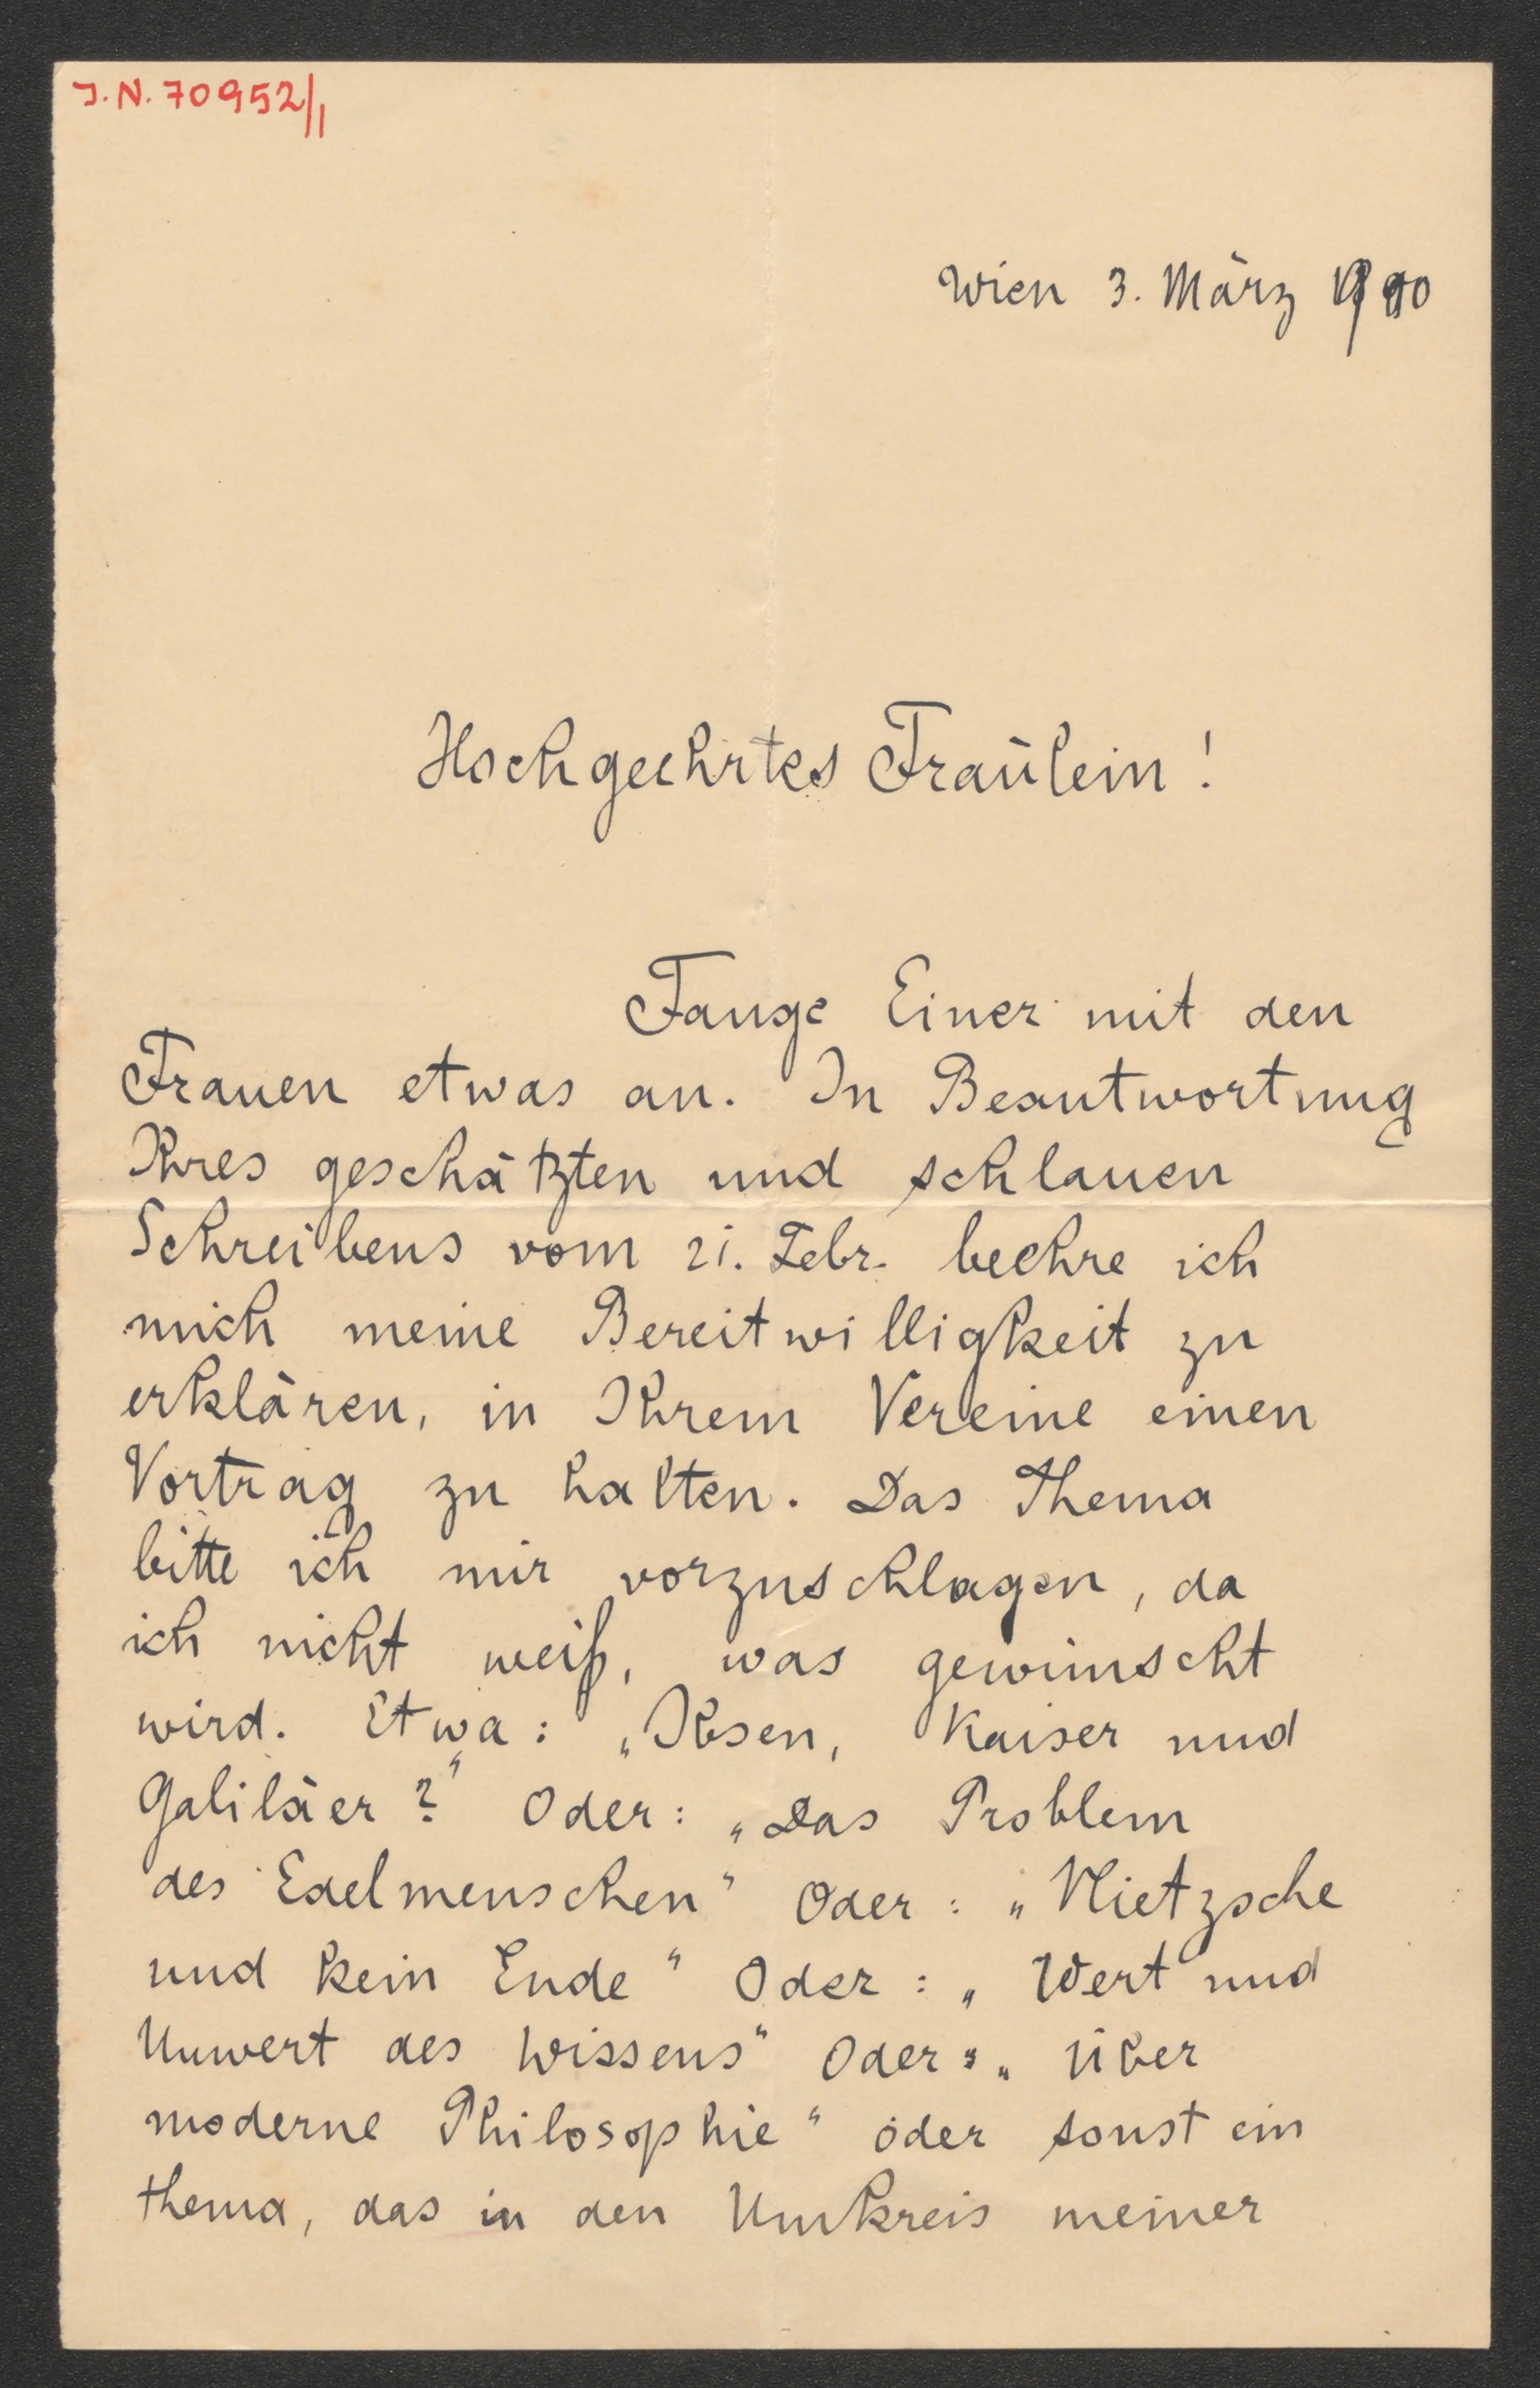 J.N. 70952/1
Wien 3. März 1900
Hochgeehrtes Fräulein!
Fange Einer mit den
Frauen etwas an. In Beantwortung
Ihres geschätzten und schlauen
Schreibens vom 21. Febr. beehre ich
mich meine Bereitwilligkeit zu
erklären, in Ihrem Vereine einen
Vortrag zu halten. Das Thema
bitte ich mir vorzuschlagen, da
ich nicht weiß, was gewünscht
wird. Etwa: „Ibsen, Kaiser und
Galiläer?“ Oder: „Das Problem
des Edelmenschen“ Oder: „Nietzsche
und kein Ende“ Oder: „Wert und
Unwert des Wissens“ Oder: „Über
moderne Philosophie“ oder sonst ein
thema, das in den Umkreis meiner